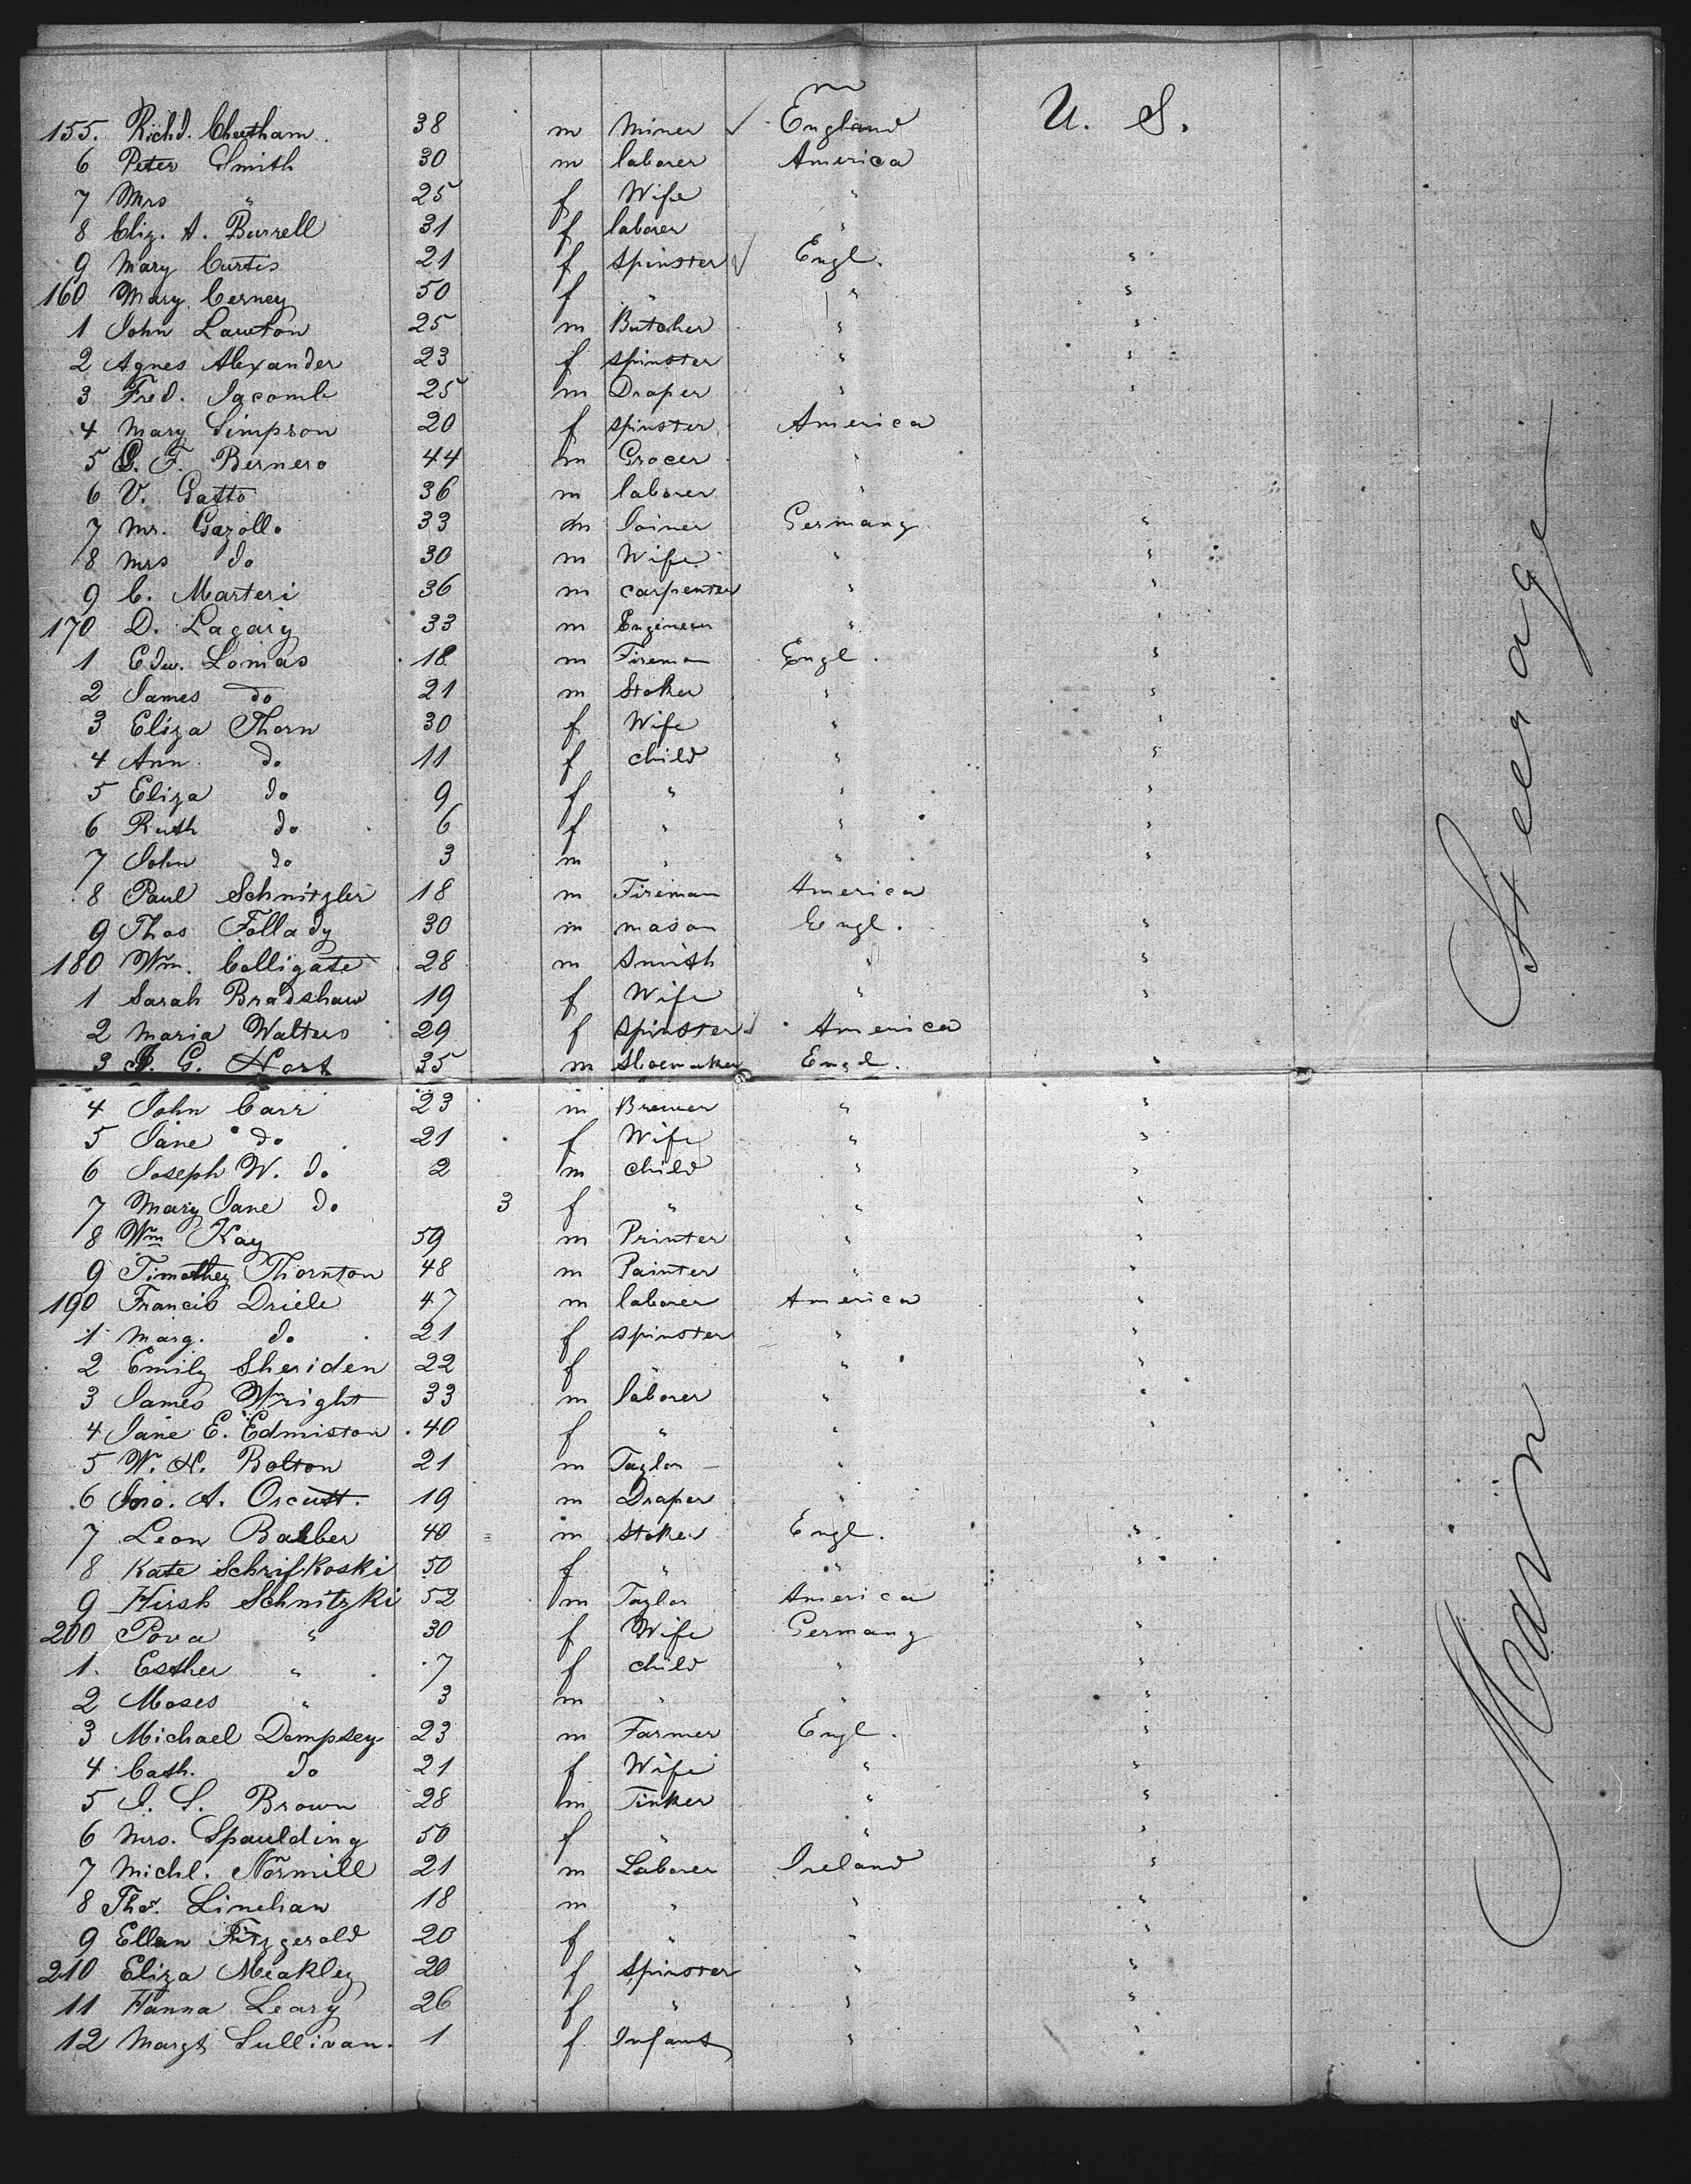 155. Richd. Cheetham. 38 m Miner ✓ England U. S.
6 Peter Smith 30 m laborer America
7 Mrs " 25 f Wife "
8 Eliz. A. Burrell 31 f laborer "
9 Mary Curtis 21 f Spinster ✓ Engl. "
160 Mary Cerney 50 f " " "
1 John Lawton 25 m Butcher " "
2 Agnes Alexander 23 f Spinster " "
3 Fred. Jacomb 25 m Draper " "
4 Mary Simpson 20 f Spinster America
5 G. F. Bernero 44 m Grocer "
6 V. Gatto 36 m laborer "
7 Mr. Gazollo 33 m Joiner Germany "
8 Mrs do 30 m Wife " "
9 C. Marteri 36 m carpenter " "
170 D. Lagary 33 m Engineer " "
1 Edw. Lomas 18 m Fireman Engl. "
2 James do 21 m Stoker " "
3 Eliza Thorn 30 f Wife " "
4 Ann do 11 f child " "
5 Eliza do 9 f " " "
6 Ruth do 6 f " " "
7 John do 3 m " " "
8 Paul Schnitzler 18 m Fireman America
9 Thos Follady 30 m mason Engl. "
180 Wm. Colligate 28 m Smith " "
1 Sarah Bradshaw 19 f Wife " "
2 Maria Walters 29 f Spinster ✓ America
3 G. Hart 35 m Shoemaker Engl. "
4 John Carr 23 m Brewer " "
5 Jane do 21 f Wife " "
6 Joseph W. do 2 m child " "
7 Mary Jane do 3 f " " "
8 Wm Kay 59 m Printer " "
9 Timothey Thornton 48 m Painter " "
190 Francis Driele 47 m laborer America "
1 Marg. do 21 f Spinster " "
2 Emily Sheriden 22 f " " "
3 James Wright 33 m laborer " "
4 Jane E. Edmiston 40 f " " "
5 W. H. Bolton 21 m Taylor "
6 Jno. A. Orcutt. 19 m Draper "
7 Leon Balber 40 m Stoker Engl. "
8 Kate Schrifkoski 50 f " " "
9 Hirsh Schnitzki 52 m Taylor America
200 Pova " 30 f Wife Germany "
1. Esther " 7 f child " "
2 Moses " 3 m " " "
3 Michael Dempsey 23 m Farmer Engl. "
4 Cath. do 21 f Wife " "
5 J. S. Brown 28 m Tinker " "
6 Mrs. Spaulding 50 f " " "
7 Michl. Normill 21 m Laborer Ireland "
8 Thos. Linehan 18 m " " "
9 Ellen Fitzgerald 20 f " " "
210 Eliza Meakley 20 f Spinster " "
11 Hanna Leary 26 f " " "
12 Margt Sullivan. 1 f Infant " "
Steerage
Main